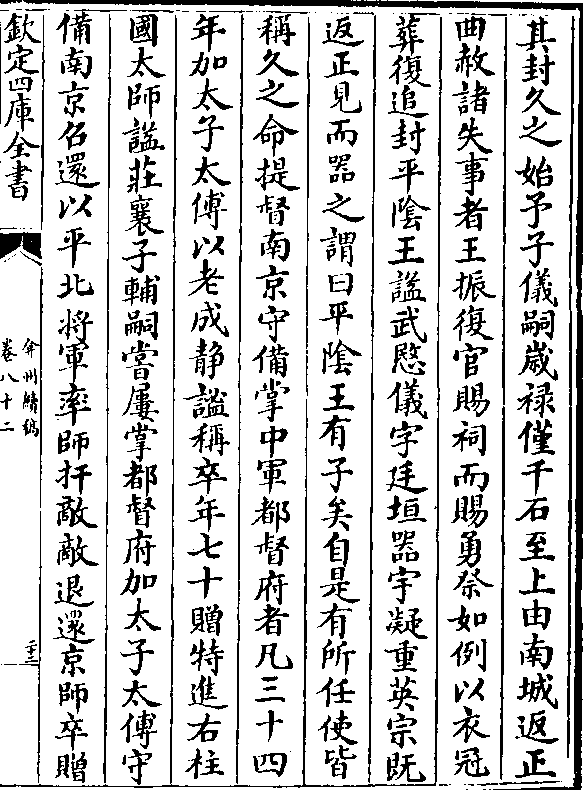 其封久之始予子儀嗣歳禄僅千石至上由南城返正
曲赦諸失事者王振復官賜祠而賜勇祭如例以衣冠
葬復追封平隂王諡武愍儀字廷垣器宇凝重英宗既
返正見而器之謂曰平隂王有子矣自是有所任使皆
稱久之命提督南京守備掌中軍都督府者凡三十四
年加太子太傅以老成静謐稱卒年七十贈特進右柱
國太師諡莊襄子輔嗣嘗屢掌都督府加太子太傅守
備南京召還以平北將軍率師扞敵敵退還京師卒贈
欽定四庫全書
弇州續稿
卷八十二
二十三